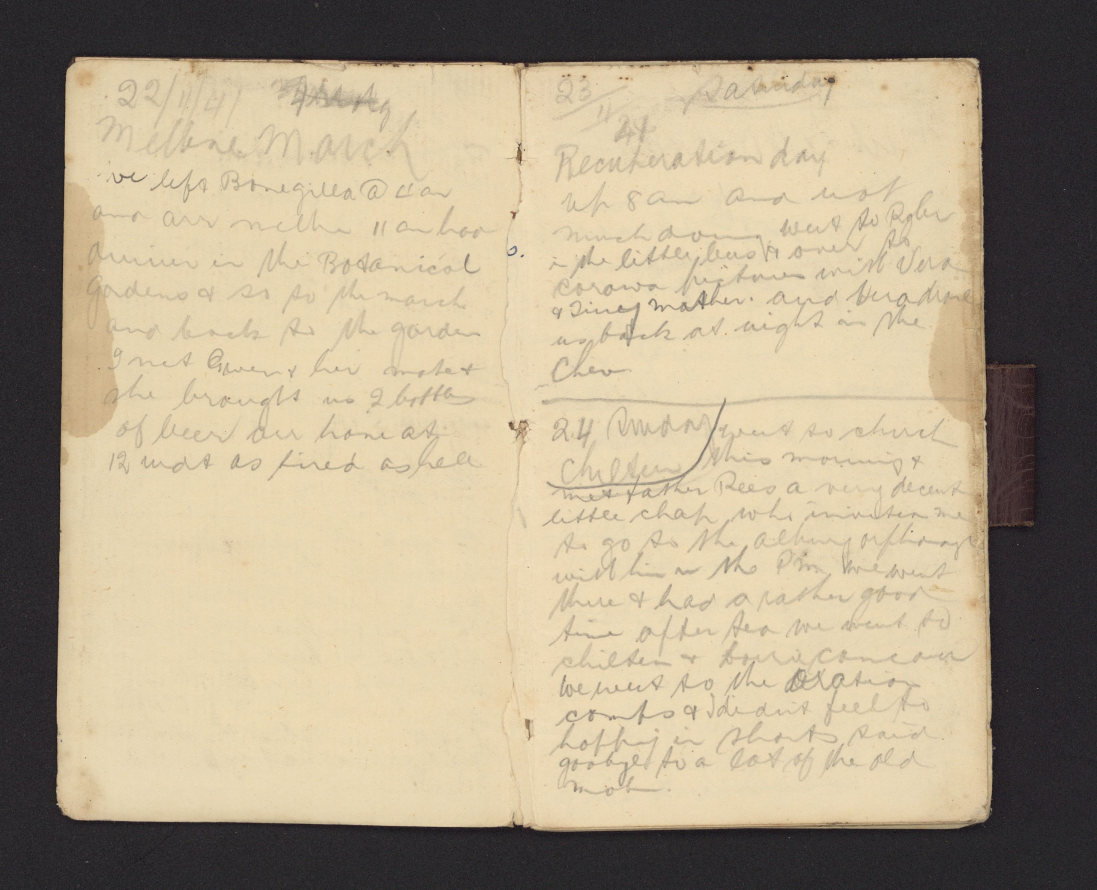 22/11/41
Melbne March
we left Bonegilla @ 4 am
and arr Melbne 11 am had
dinner in the Botanical
Gardens & so to the march
and back to the garden
I met Gwen & her mate &
she brought us 2 bottles
of beer arr home at
12 mdt as tired as hell
23/11/41 Saturday
Recuperation day
Up 8 am and not
much doing went to Rgler
in the little bus & over to
corowa pictures with Vera
& Tincy Mather. and Vera drove
us back at night in the
Chev
24 Sunday went to church
Chiltern this morning &
met father Rees a very decent
little chap who invited me
to go to the albury orphanage
with him in the Pm we went
there & had a rather good
time after tea we went to
chiltern &
we went to the oration
comps & I didnt feel to
happy in shorts said
goodbye to a lot of the old
mob.